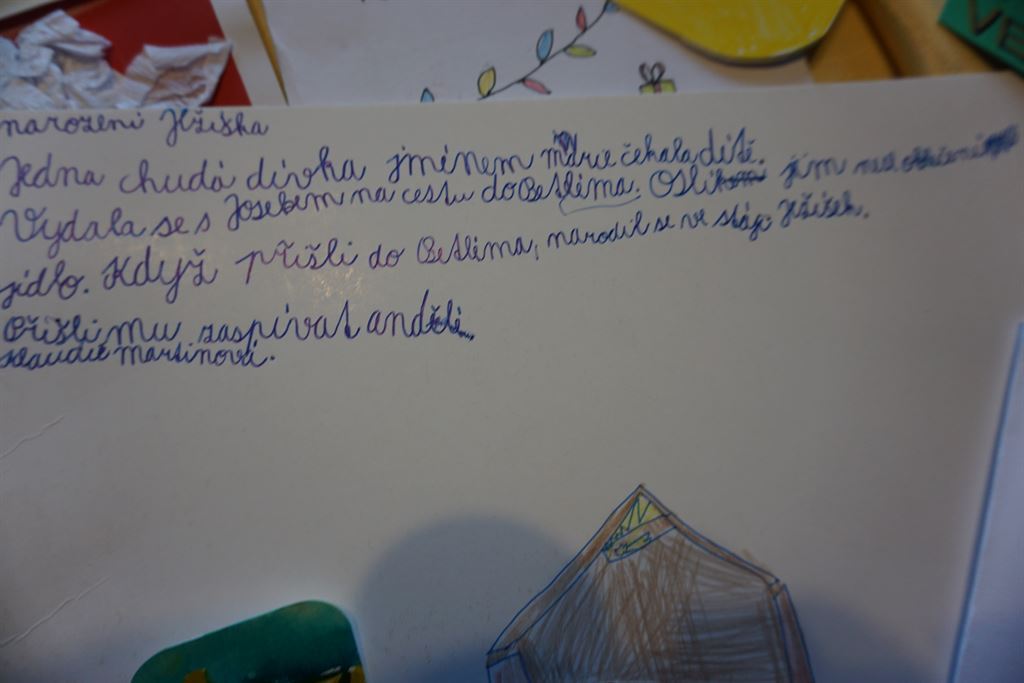 narození Ježíška
Jedna chudá dívka jménem marie čekala dítě.
Vydala se s Josefem na cestu do Betléma. Oslík jim nesl oblečení
jídlo. Když přišli do Betléma, narodil se ve stáji Ježíšek.
Přišli mu zaspívat andělé.
Klaudie Martinová.
VE